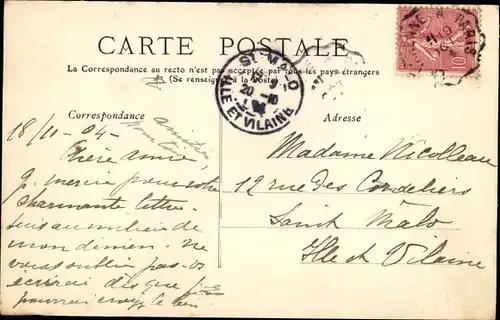 CARTE POSTALE
La Correspondance au recto n'est pas acceptée par tous les pays étrangers
(Se renseigner à la Poste)
ST MALO
20 -10
ILLE ET VILAINE
PARIS
10
Correspondance
Adresse
18/10 - 04 -
Chère amie,
merci pour votre
charmante lettre.
suis au milieu de
mon démén. ne
vous oublie pas.
écrirai dès que je
pourrai croyez le bien
Madame Nicolleau
12 rue des Cordeliers
Saint Malo
Ille et Vilaine